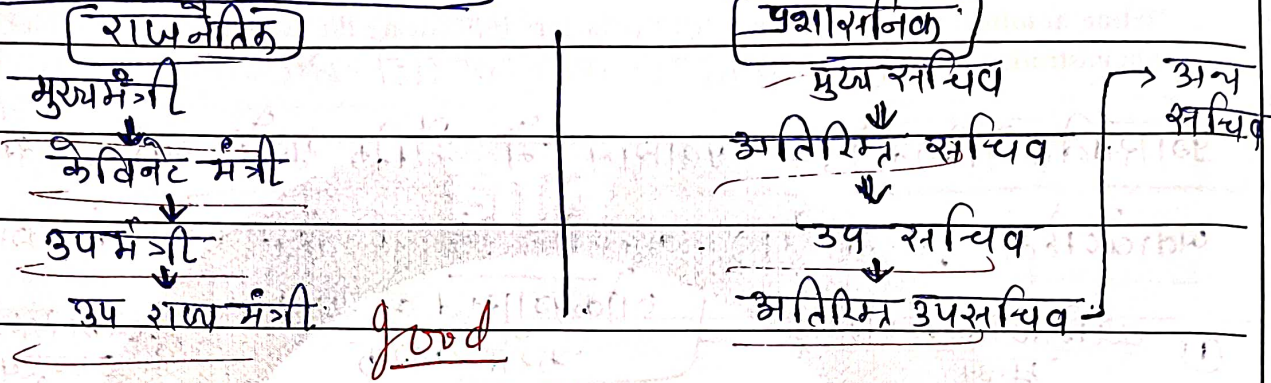 राजनैतिक
मुख्यमंत्री
↓
केविनेट मंत्री
↓
उपमंत्री
↓
उप राज्य मंत्री
good
प्रशासनिक
मुख्य सचिव
↓
अतिरिक्त सचिव
↓
उप सचिव
↓
अतिरिक्त उपसचिव
→ अन्य
सचिव